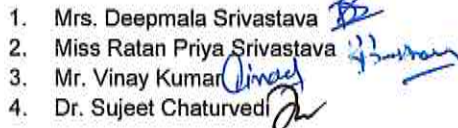 1. Mrs. Deepmala Srivastava
2. Miss Ratan Priya Srivastava
3. Mr. Vinay Kumar
4. Dr. Sujeet Chaturvedi